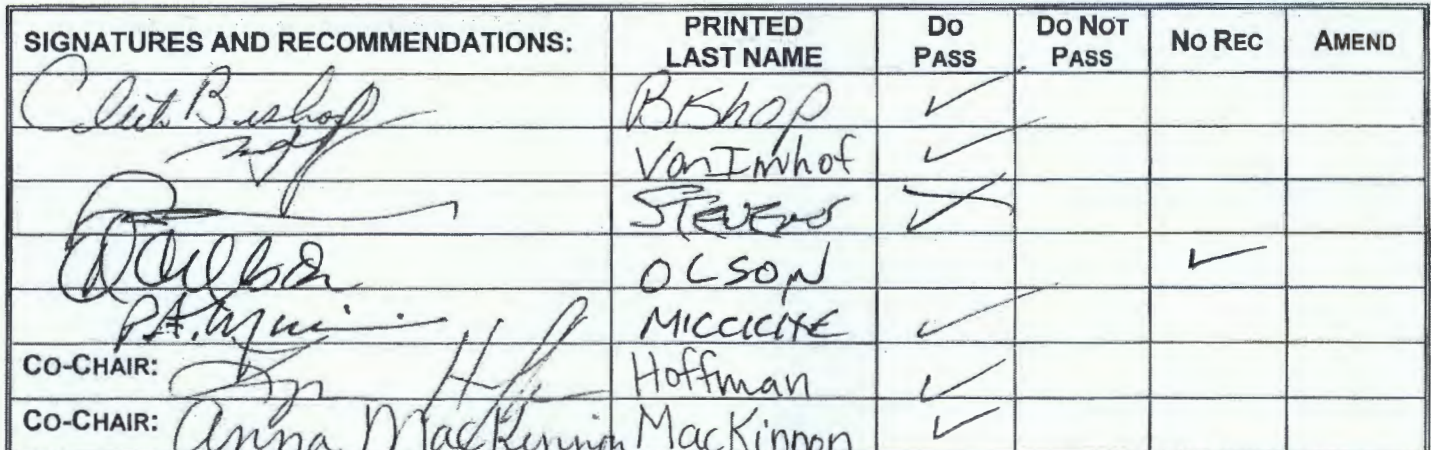 SIGNATURES AND RECOMMENDATIONS: PRINTED LAST NAME DO PASS DO NOT PASS NO REC AMEND
Click Bishop Bishop ✓
Von Imhof ✓
STEVENS ✓
OLSON ✓
P.A. MICCICHE ✓
CO-CHAIR: Hoffman ✓
CO-CHAIR: Anna MacKinnon MacKinnon ✓